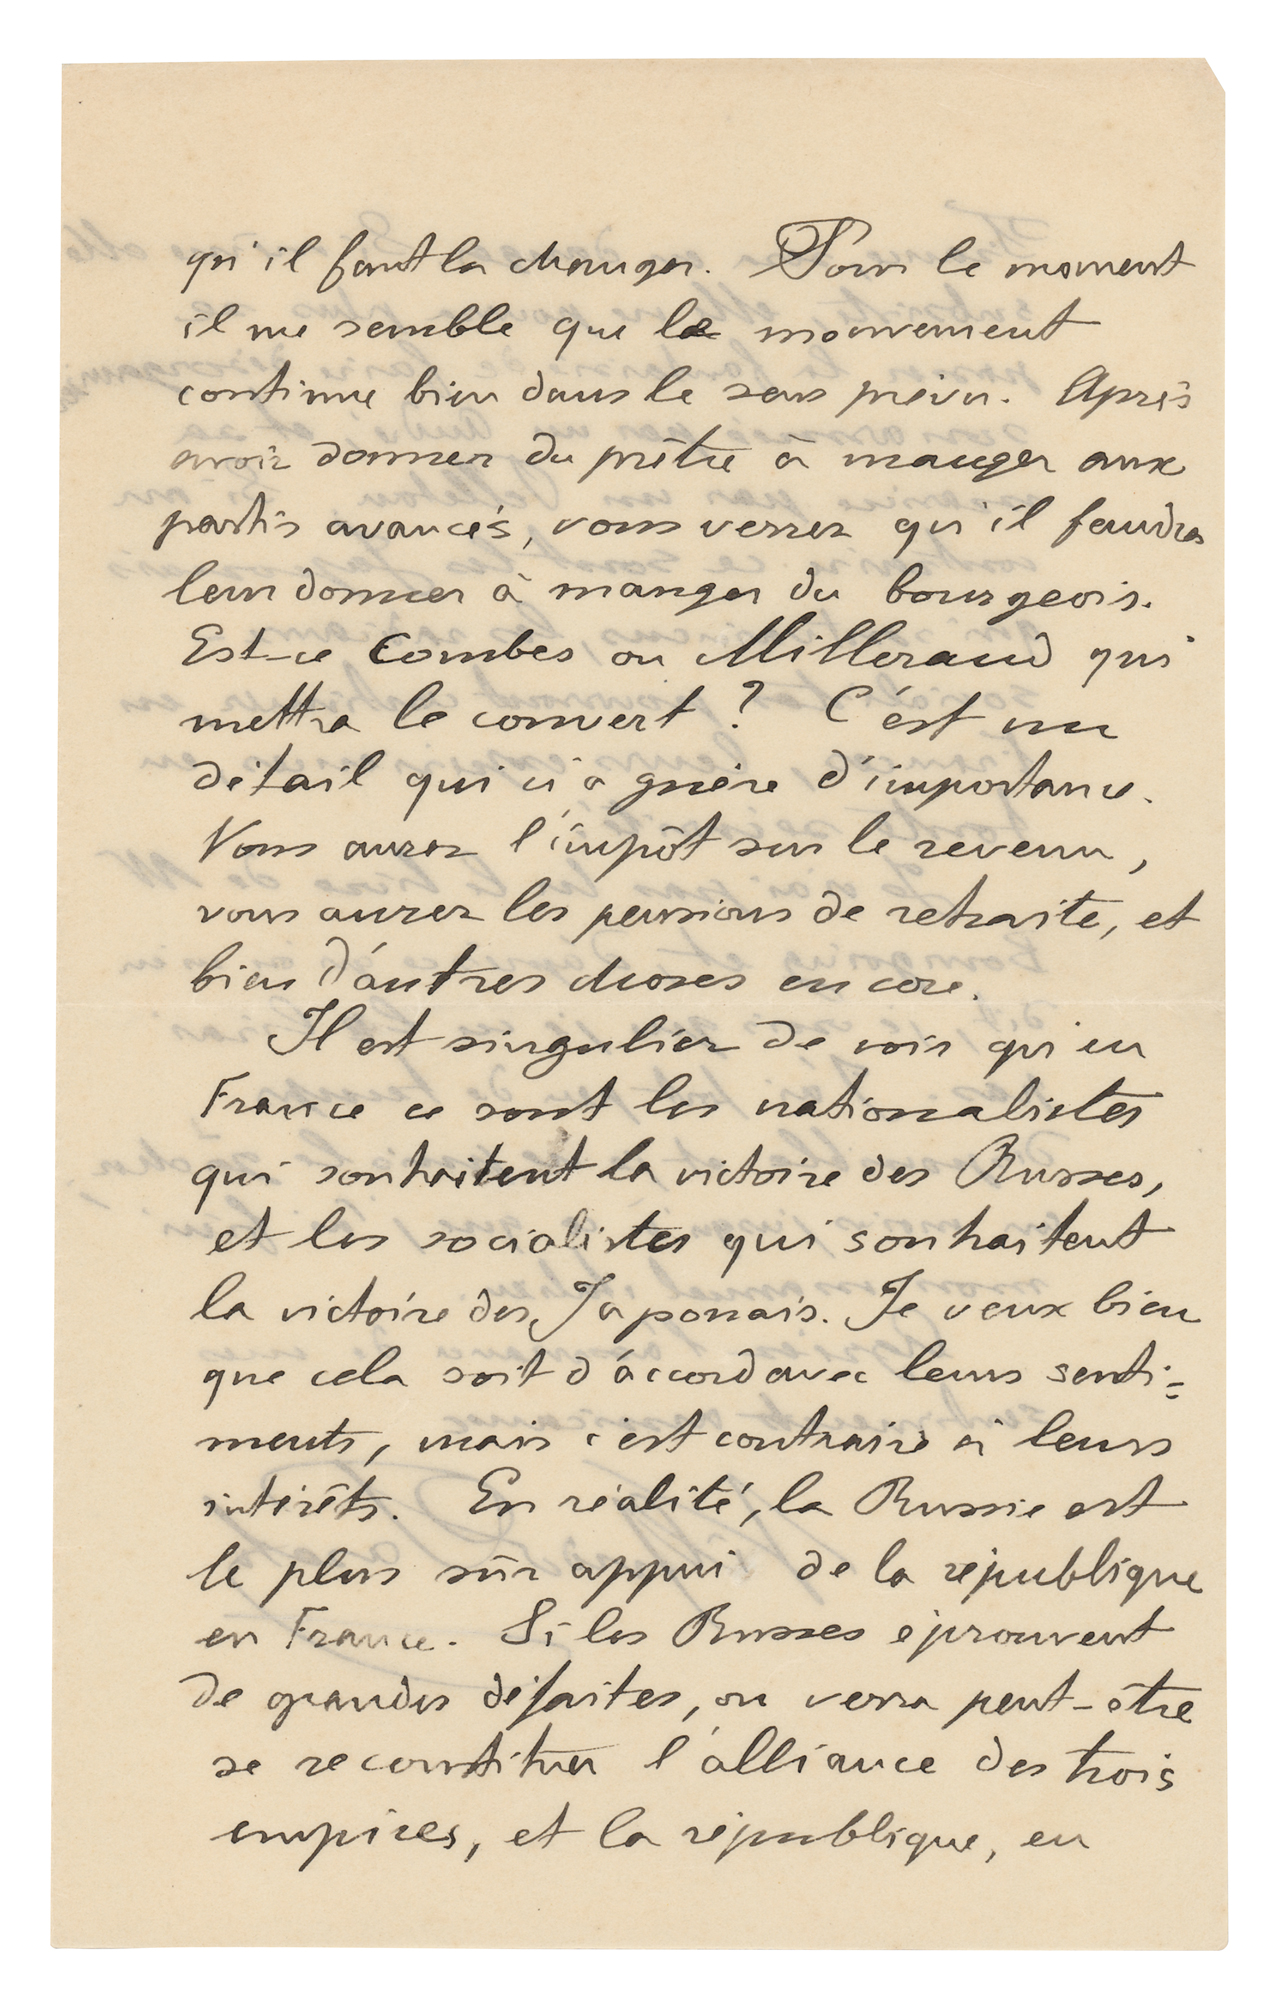 qu'il faut la changer. Pour le moment
il me semble que le mouvement
continue bien dans le sens prévu. Après
avoir donner du prêtre à manger aux
partis avancés, vous verrez qu'il faudra
leur donner à manger du bourgeois.
Est-ce Combes ou Millerand qui
mettra le couvert ? C'est un
détail qui n'a guère d'importance.
Vous aurez l'impôt sur le revenu,
vous aurez les pensions de retraite, et
bien d'autres choses encore.
Il est singulier de voir qu'en
France ce sont les nationalistes
qui souhaitent la victoire des Russes,
et les socialistes qui souhaitent
la victoire des Japonais. Je veux bien
que cela soit d'accord avec leurs senti-
ments, mais c'est contraire à leurs
intérêts. En réalité, la Russie est
le plus sûr appui de la république
en France. Si les Russes éprouvent
de grandes défaites, on verra peut-être
se reconstituer l'alliance des trois
empires, et la république, en